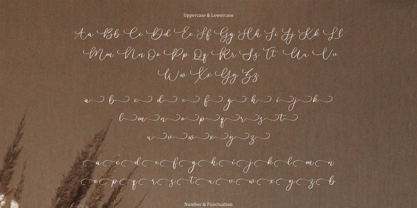 Uppercase & Lowercase
Aa Bb Cc Dd Ee Ff Gg Hh Ii Jj Kk Ll
Mm Nn Oo Pp Qq Rr Ss Tt Uu Vv
Ww Xx Yy Zz
a b c d e f g h i j k
l m n o p q r s t
u v w x y z
a c d e f g h i j k l m n
o p q r s t u v w x y z b
Number & Punctuation